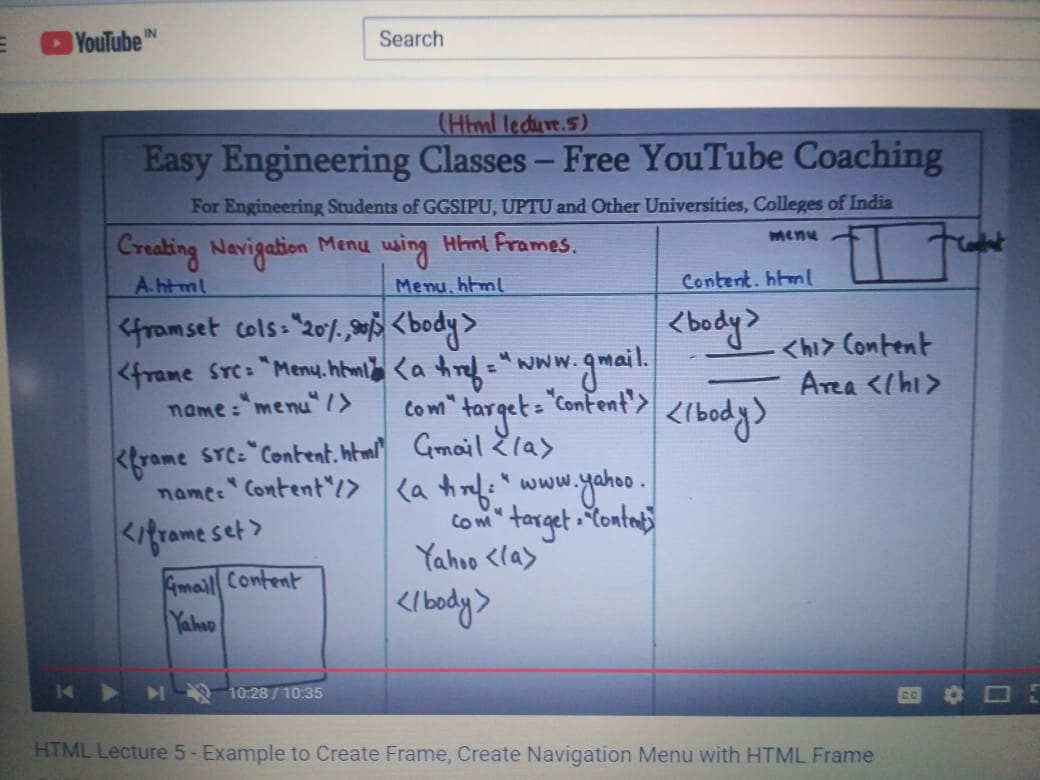 YouTube IN
Search
(Html lecture.5)
Easy Engineering Classes – Free YouTube Coaching
For Engineering Students of GGSIPU, UPTU and Other Universities, Colleges of India
Creating Navigation Menu using Html Frames.
menu
Content
A.html
<framset cols="20%,80%>
<frame src="Menu.html"
name="menu"/>
<frame src="Content.html"
name="Content"/>
</frameset>
Gmail Content
Yahoo
Menu.html
<body>
<a href="www.gmail.
com" target="Content">
Gmail </a>
<a href="www.yahoo.
com" target="Content>
Yahoo </a>
</body>
Content.html
<body>
<h1> Content
Area </h1>
</body>
10:28 / 10:35
CC
HTML Lecture 5 - Example to Create Frame, Create Navigation Menu with HTML Frame